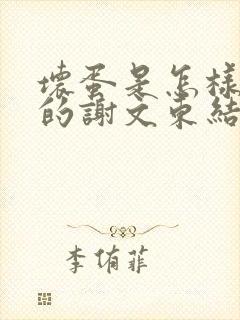 壞蛋是怎樣
的謝文東結
李侑菲